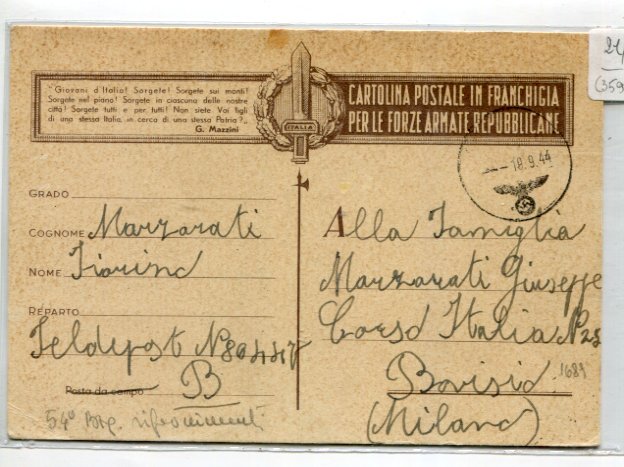 "Giovani d'Italia! Sorgete! Sorgete sui monti!
Sorgete nel piano! Sorgete in ciascuna delle nostre
città! Sorgete tutti e per tutti! Non siete. Voi figli
di una stessa Italia, in cerca di una stessa Patria?„
G. Mazzini
ITALIA
CARTOLINA POSTALE IN FRANCHIGIA
PER LE FORZE ARMATE REPUBBLICANE
18.9.44
24
(359
GRADO
COGNOME Marzorati
NOME Fiorino
REPARTO
Feldepost N 80447
Posta da campo B
54° Btg. rifornimenti
Alla Famiglia
Marzorati Giuseppe
Corso Italia N 25
Bovisio 1689
(Milano)